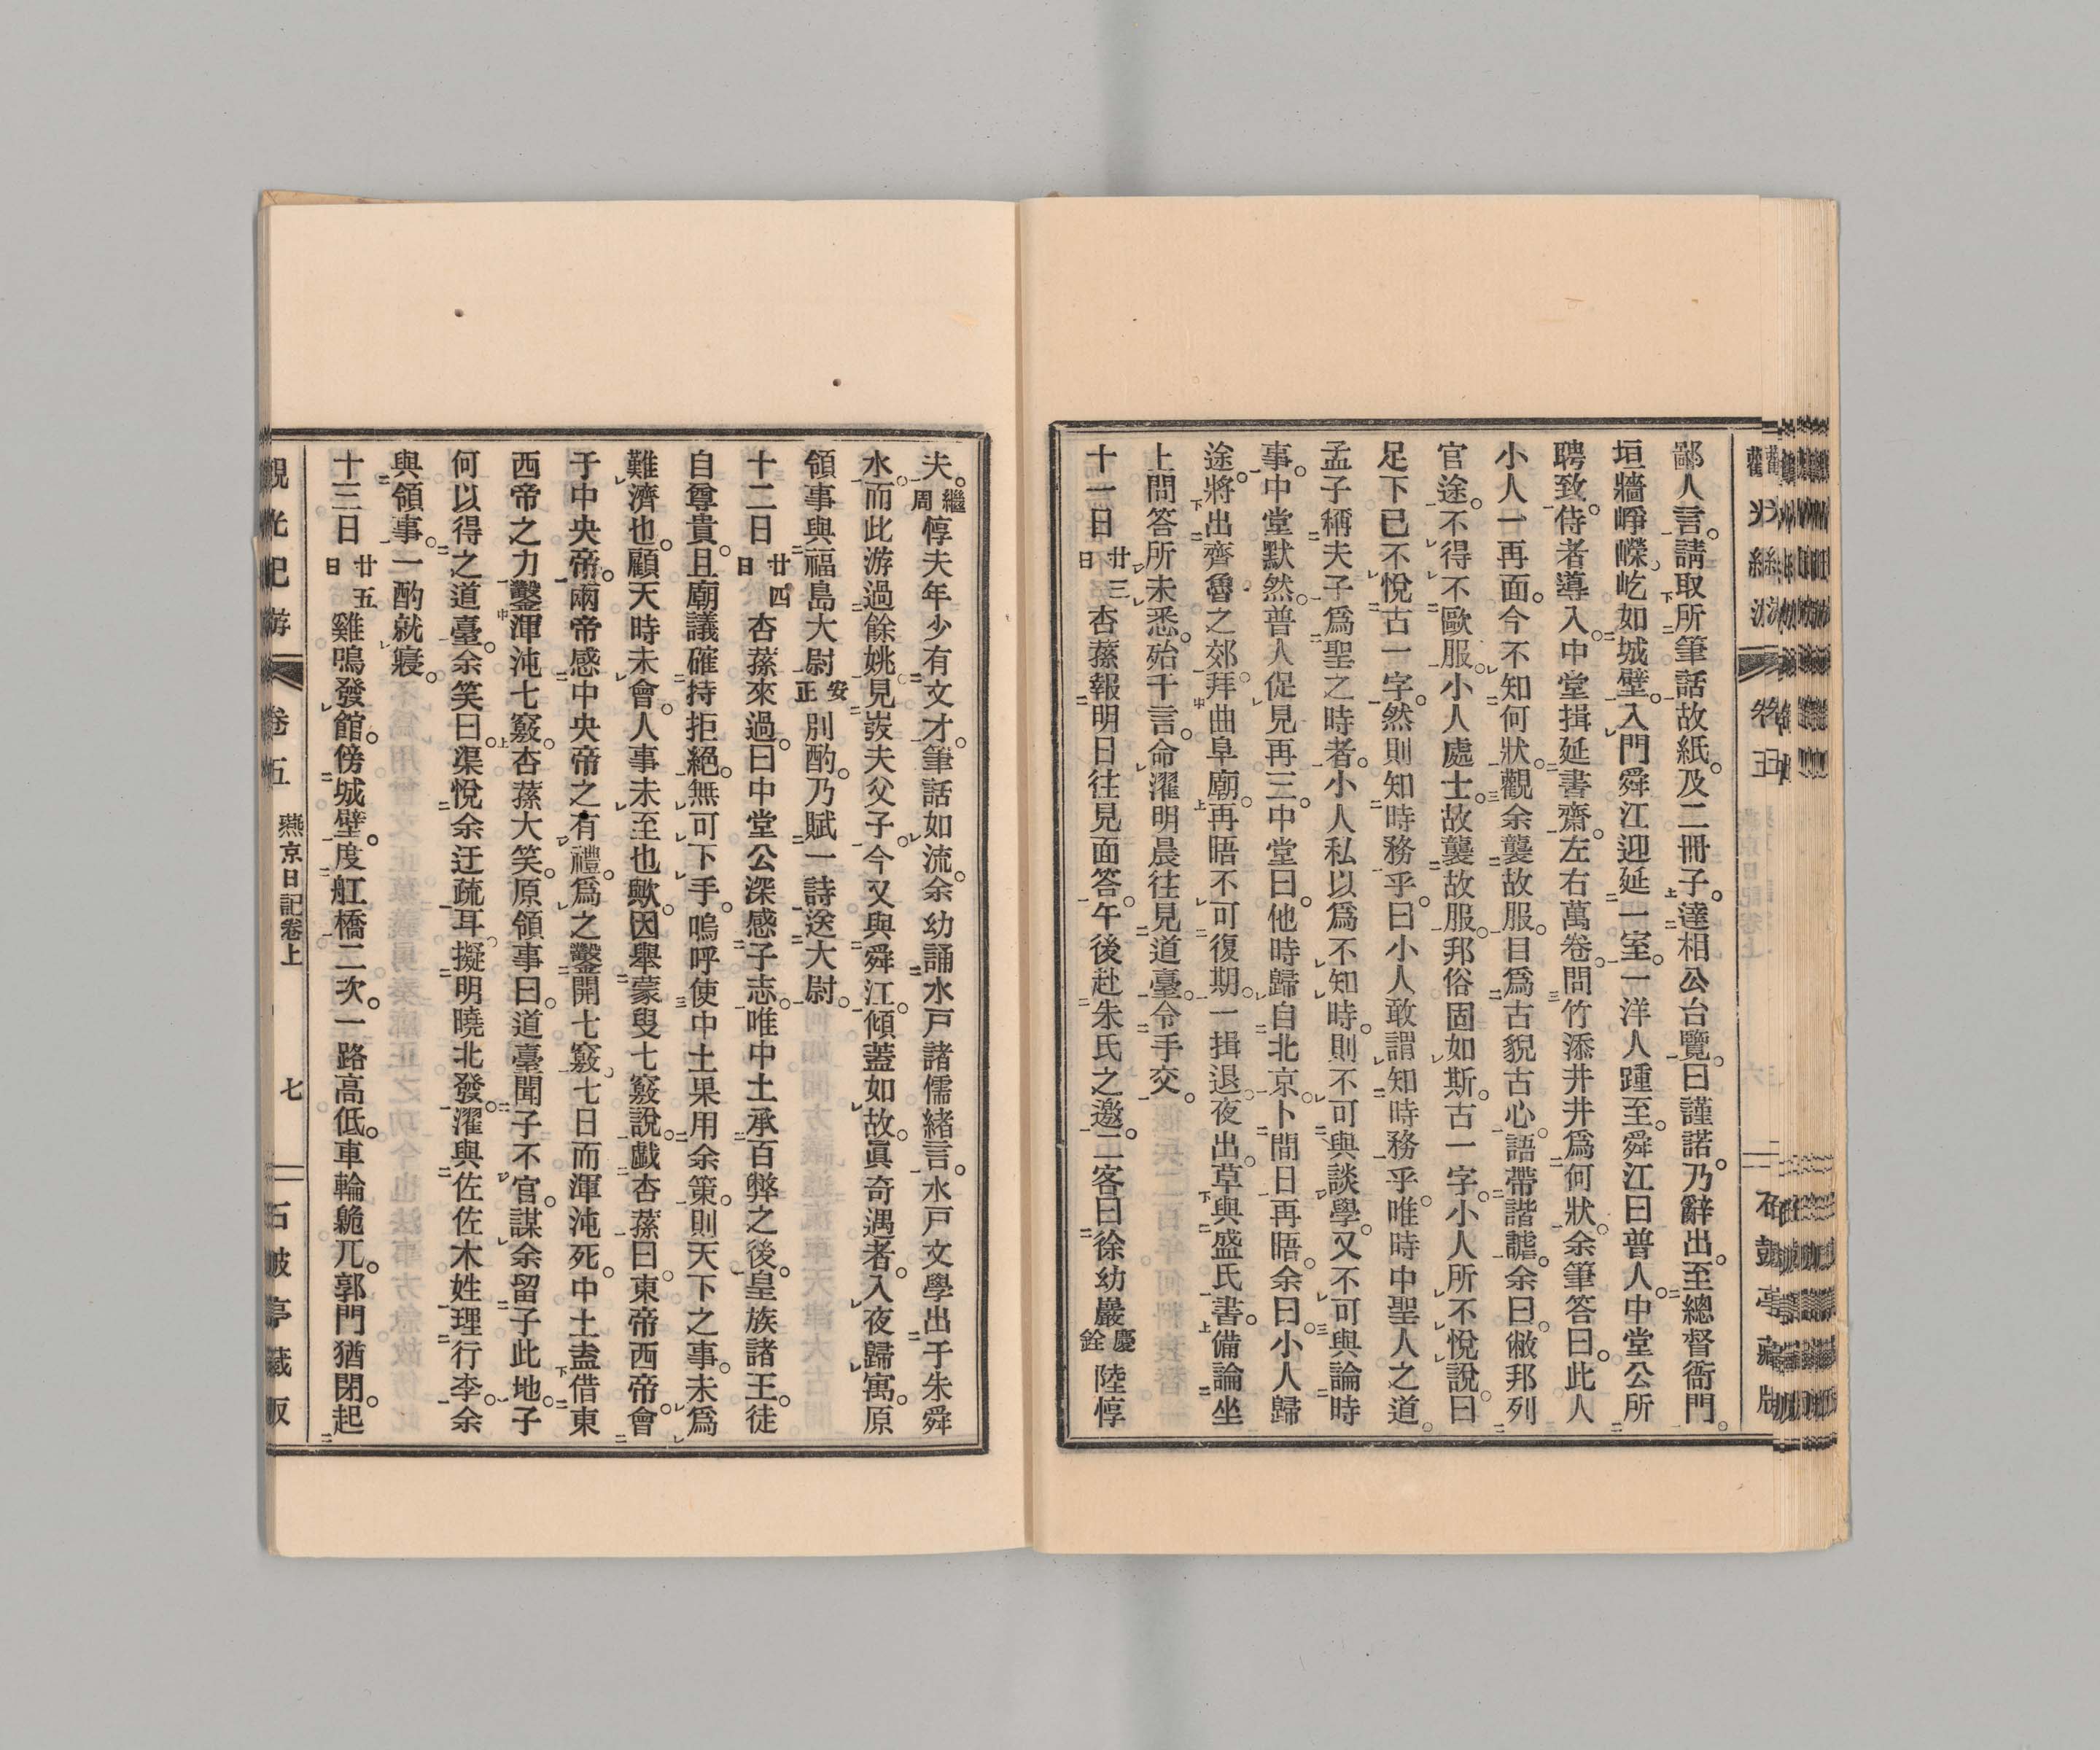 鄙人言。請取所筆話故紙。及二冊子。達相公台覽。曰謹諾。乃辭出。至總督衙門。
垣牆崢嶸屹如城壁。入門舜江迎延一室。一洋人踵至。舜江曰普人。中堂公所
聘致。侍者導入。中堂揖延書齋。左右萬卷。問竹添井井爲何狀。余筆答曰。此人
小人一再面。今不知何狀。觀余襲故服。目爲古貌古心。語帶諧謔。余曰。敝邦列
官途。不得不歐服。小人處士。故襲故服。邦俗固如斯。古一字。小人所不悅說。曰
足下已不悅古一字。然則知時務乎。曰小人敢謂知時務乎。唯時中聖人之道。
孟子稱夫子爲聖之時者。小人私以爲不知時。則不可與談學。又不可與論時
事。中堂默然。普人促見再三。中堂曰。他時歸自北京。卜間日再晤。余曰。小人歸
途。將出齊魯之郊。拜曲阜廟。再晤不可復期。一揖退。夜出。草與盛氏書。備論坐
上問答所未悉。殆千言。命濯明晨往見道臺。令手交。
十一日廿三日杏蓀報明日往見面答。午後赴朱氏之邀。二客曰徐幼巖慶銓陸惇
夫。繼周惇夫年少有文才。筆話如流。余幼誦水戸諸儒緒言。水戸文學出于朱舜
水。而此游過餘姚。見㳟夫父子。今又與舜江。傾蓋如故。眞奇遇者。入夜歸寓。原
領事與福島大尉安正別酌。乃賦一詩送大尉。
十二日廿四日杏蓀來過。曰中堂公深感子志。唯中土承百弊之後。皇族諸王。徒
自尊貴。且廟議確持拒絕。無可下手。嗚呼使中土果用余策。則天下之事。未爲
難濟也。顧天時未會。人事未至也歟。因舉蒙叟七竅說。戯杏蓀曰。東帝西帝。會
于中央帝。兩帝感中央帝之有禮。爲之鑿開七竅。七日而渾沌死。中土盍借東
西帝之力。鑿渾沌七竅。杏蓀大笑。原領事曰。道臺聞子不官。謀余留子此地。子
何以得之道臺。余笑曰。渠悅余迂疏耳。擬明曉北發。濯與佐佐木姓理行李。余
與領事。一酌就寢。
十三日廿五日雞鳴發館。傍城壁。度舡橋二次。一路高低。車輪臲兀。郭門猶閉。起
觀光記游 卷五 燕京日記卷上 七 石皷亭藏版